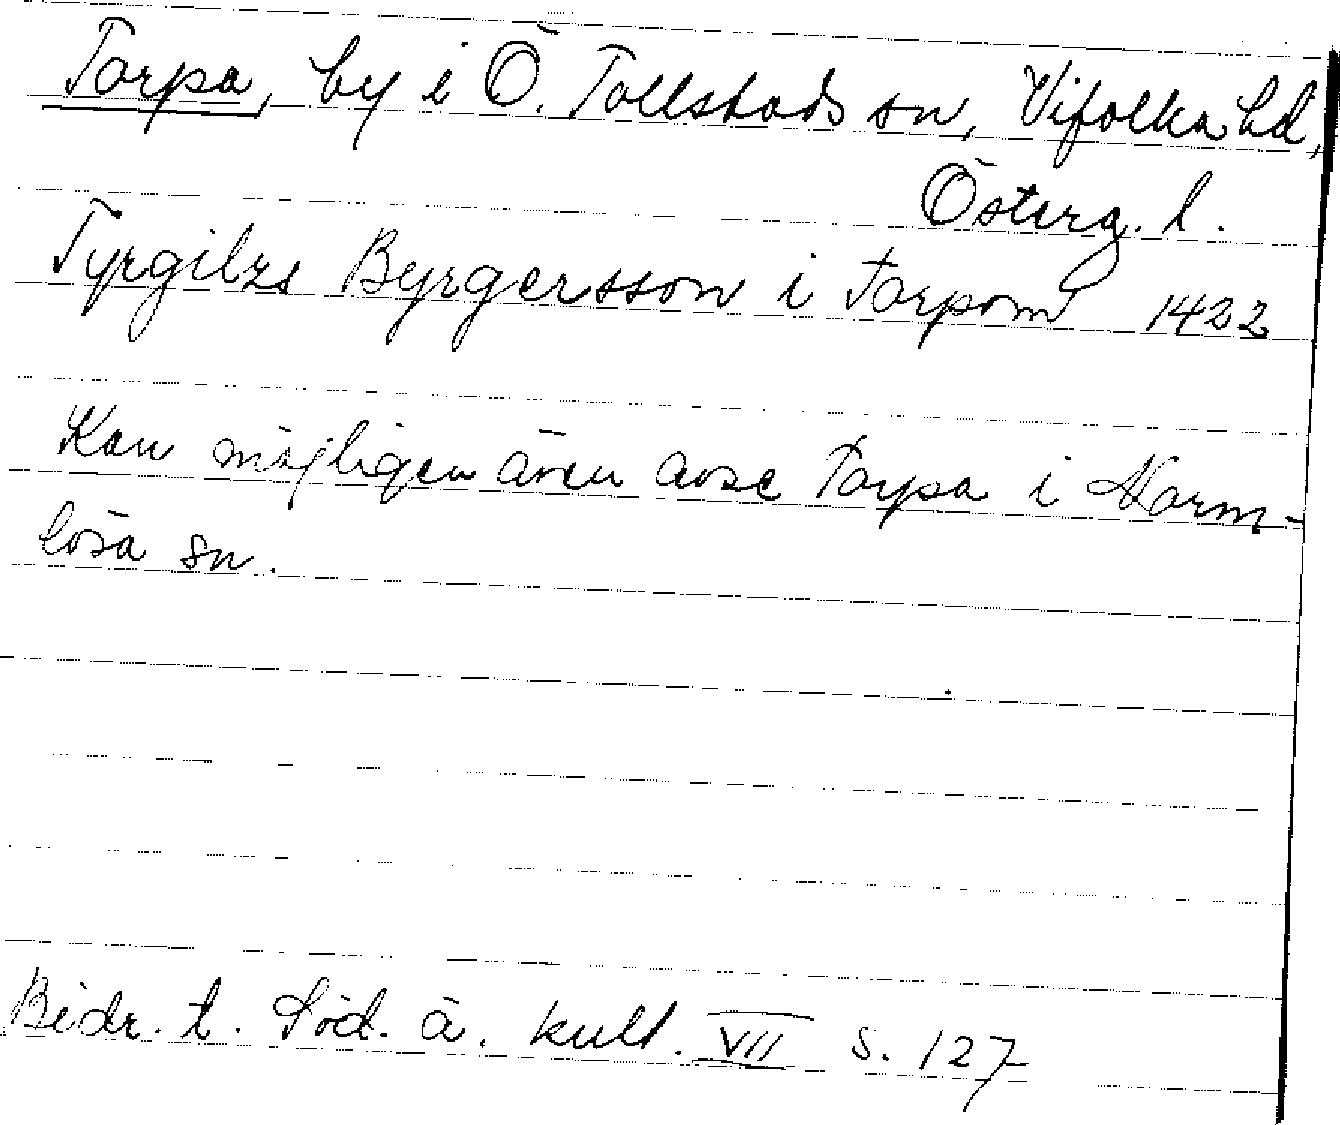 Torpa, by i Ö. Tollstads sn, Vifolka hd,
Österg. l.
Tyrgilzs Byrgersson i torpom 1422
Kan möjligen även avse Torpa i Norm-
lösa sn.
Bidr. t. Söd. ä. kult. VII s. 127